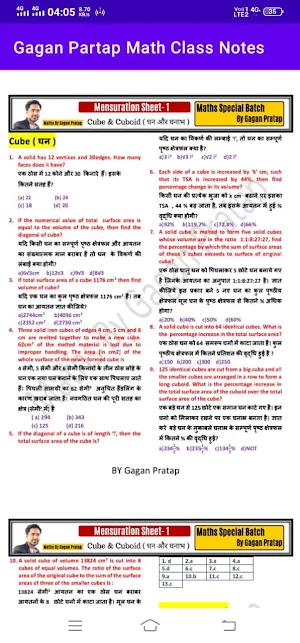 04:05
8.70 KB/s
Vo1 LTE2
4G
35
Gagan Partap Math Class Notes
Mensuration Sheet- 1
Maths Special Batch
By Gagan Pratap
Maths By Gagan Pratap
Cube & Cuboid ( घन और घनाभ )
Cube ( घन )
1. A solid has 12 vertices and 30edges. How many
faces does it have?
एक ठोस में 12 कोने और 30 किनारे हैं। इसके
कितने सतह हैं?
(a) 22 (b) 24
(c) 18 (d) 20
2. If the numerical value of total surface area is
equal to the volume of the cube, then find the
diagonal of cube?
यदि किसी घन का सम्पूर्ण पृष्ठ क्षेत्रफल और आयतन
का संख्यात्मक मान बराबर है तो घन के विकर्ण की
लंबाई क्या होगी?
a)6√3cm b)12√3 c)9√3 d)8√3
3. If total surface area of a cube 1176 cm² then find
volume of cube?
यदि एक घन का कुल पृष्ठ क्षेत्रफल 1176 cm² है। तब
घन का आयतन ज्ञात कीजिये?
a)2744cm³ b)4096 cm³
c)2352 cm³ d)2730 cm³
4. Three solid iron cubes of edges 4 cm, 5 cm and 6
cm are melted together to make a new cube.
62cm³ of the melted material is lost due to
improper handling. The area (in cm2) of the
whole surface of the newly formed cube is
4 सेमी, 5 सेमी और 6 सेमी किनारों के तीन ठोस लोहे के
घन एक नया घन बनाने के लिए एक साथ पिघलाए जाते
हैं। पिघली सामग्री का 62 सेमी³ अनुचित हैंडलिंग के
कारण खराब जाता है। नवगठित घन की पूरी सतह का
क्षेत्र (सेमी²) में है
(a) 294 (b) 343
(c) 125 (d) 216
5. If the diagonal of a cube is of length 'l', then the
total surface area of the cube is?
यदि घन का विकर्ण की लम्बाई 'l', तो घन का सम्पूर्ण
पृष्ठ क्षेत्रफल क्या है?
a)3 l² b)√3 l² c)√2 l² d)2 l²
6. Each side of a cube is increased by 'k' cm, such
that its TSA is increased by 44%, then find
percentage change in its volume?
किसी घन की प्रत्येक भुजा को x cm बढाने पर इसका
TSA , 44 % बढ़ जाता है, तब इसके आयतन में हुई %
वृद्धि क्या होगी?
a)92% b)119.7% c)72.8% d)66%
7. A solid cube is melted to form five solid cubes
whose volume are in the ratio 1:1:8:27:27, find
the percentage by which the sum of surface areas
of these 5 cubes exceeds to surface of original
cube?
एक ठोस घातु घन को पिघलाकर 5 छोटे घन बनाये गए
है जिनके आयतन का अनुपात 1:1:8:27:27 है। ज्ञात
कीजिये इस प्रकार बने 5 नए घन का कुल पृष्ठीय
क्षेत्रफल मूल घन के पृष्ठ क्षेत्रफल से कितने % अधिक
होगा?
a)20% b)40% c)50% d)60%
8. A solid cube is cut into 64 identical cubes. What is
the percentage increase in the total surface area?
एक ठोस घन को 64 समरूप घनों में काटा जाता है। कुल
पृष्ठीय क्षेत्रफल में कितने प्रतिशत की वृद्धि हुई है ?
a)150 b)200 c)300 d)250
9. 125 identical cubes are cut from a big cube and all
the smaller cubes are arranged in a row to form a
long cuboid. What is the percentage increase in
the total surface area of the cuboid over the total
surface area of the cube?
एक बड़े घन से 125 छोटे एक समान घन काटे गए हैं। इन
घनों को मिलाकर रखने पर एक घनाभ बनता है। ज्ञात
करे बड़े घन के मुकाबले घनाभ के सम्पूर्ण पृष्ठ क्षेत्रफल
में कितने % की वृद्धि हुई?
d)NOT
BY Gagan Pratap
Mensuration Sheet- 1
Maths Special Batch
By Gagan Pratap
Maths By Gagan Pratap
Cube & Cuboid ( घन और घनाभ )
10. A solid cube of volume 13824 cm³ is cut into 8
cubes of equal volumes. The ratio of the surface
area of the original cube to the sum of the surface
areas of three of the smaller cubes is :
13824 सेमी³ आयतन का एक ठोस घन बराबर
आयतनों के 8 छोटे घनों में काटा जाता है। मूल घन के
1. d 2.a 3.a 4.a
5.d 6.c 7.c 8.c
9.a 10.b 11.c 12.c
13.c